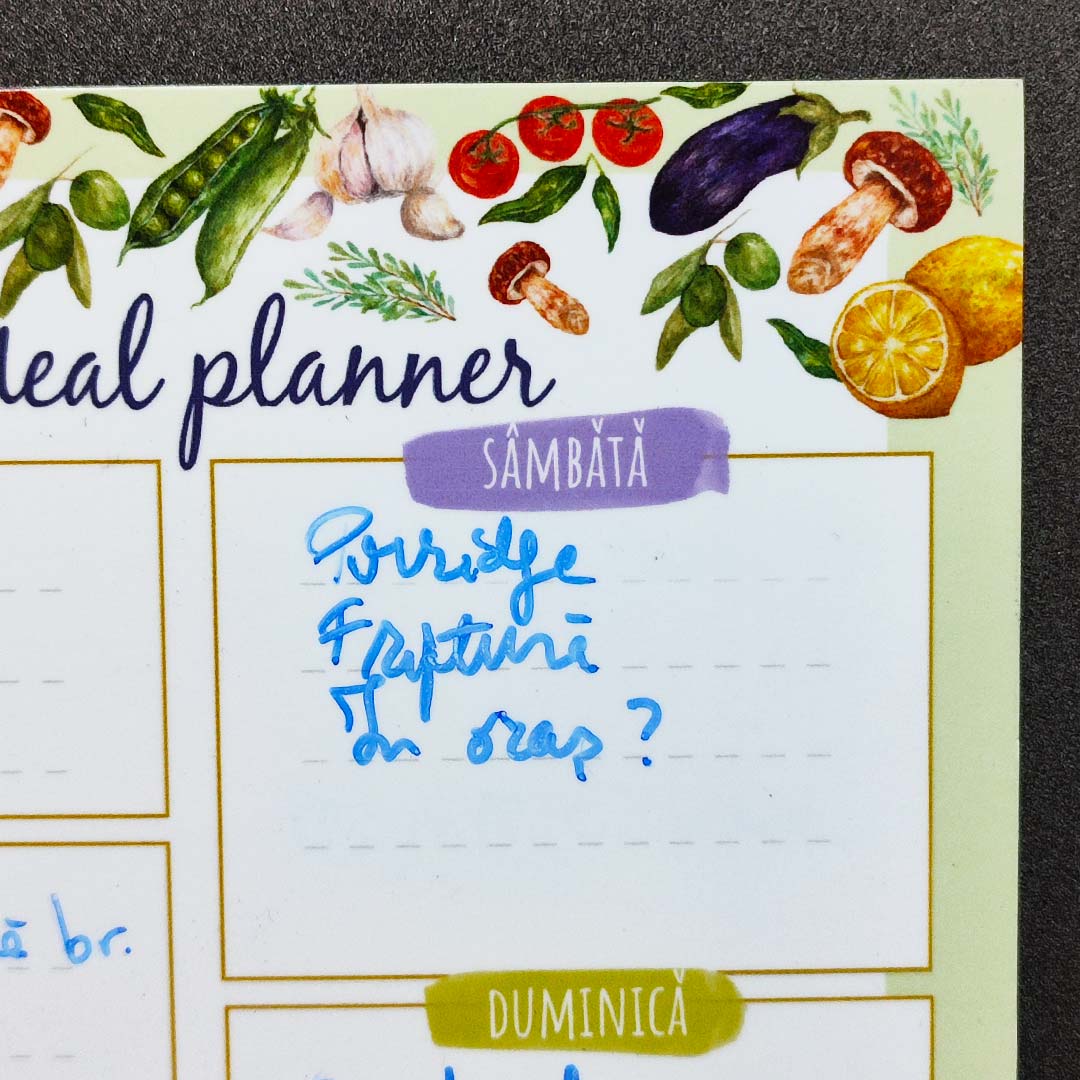 Meal planner
SÂMBĂTĂ
Porridge
Friptură
În oraș?
br.
DUMINICĂ